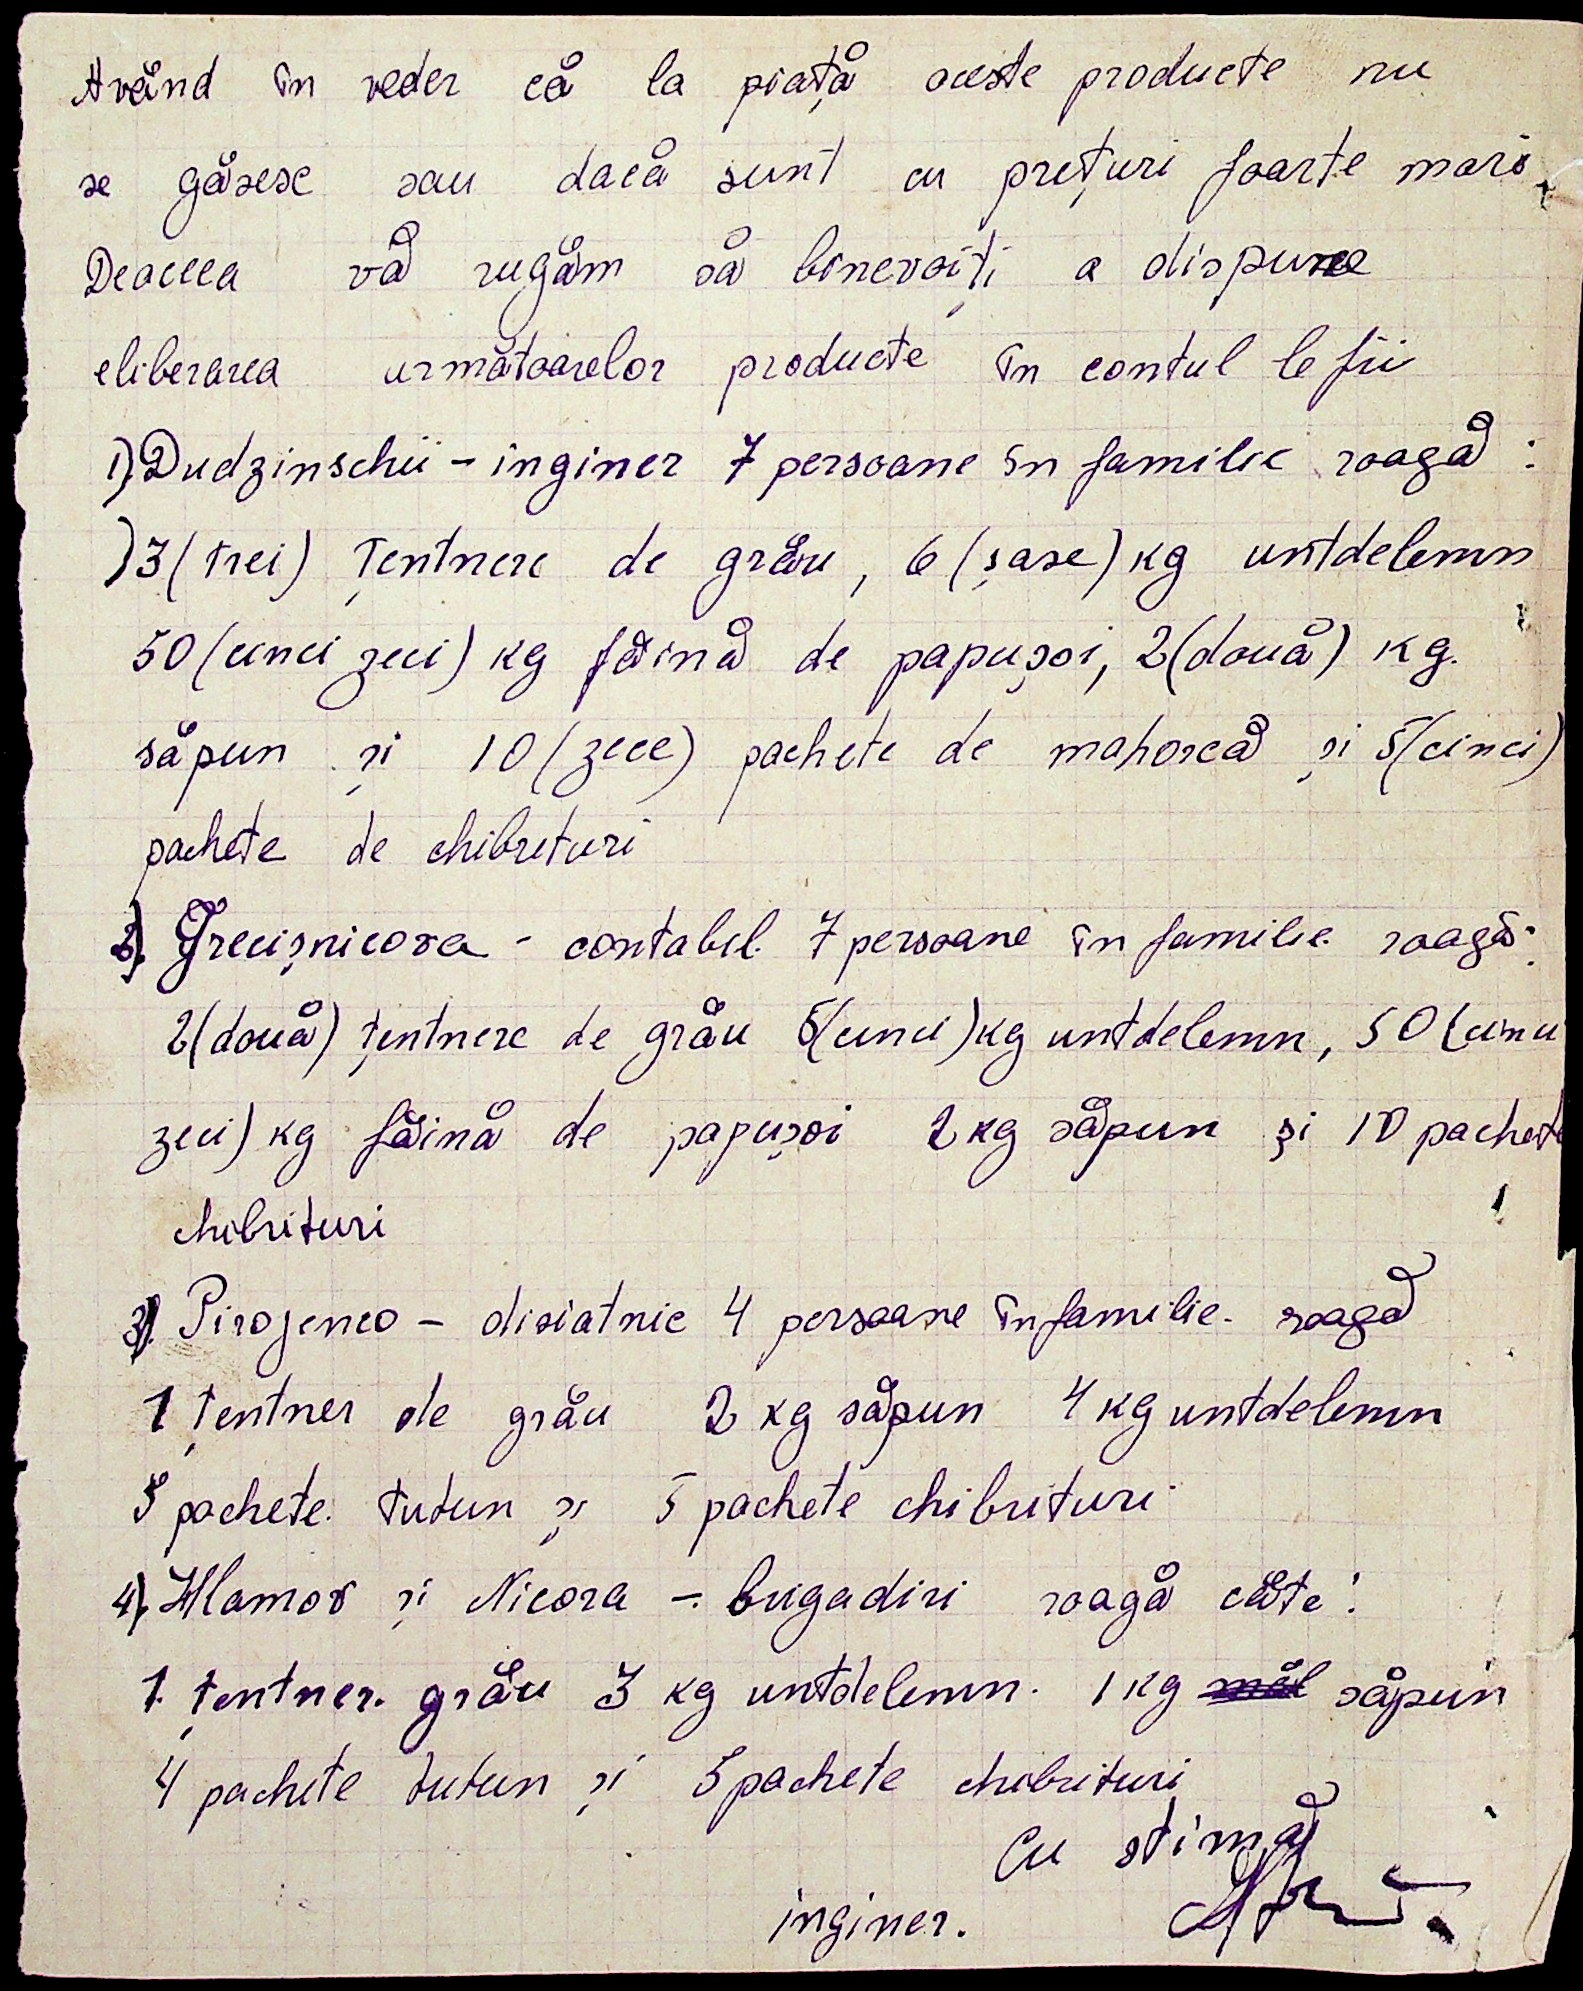 Având în veder că la piață aceste producte nu
se găsesc sau dacă sunt cu prețuri foarte mari
Deaceea vă rugăm să binevoiți a dispune
eliberarea următoarelor producte în contul lefii
1) Dudzinschii - inginer 7 persoane în familie roagă :
) 3 (trei) țentnere de grâu, 6 (șase) kg untdelemn
50 (cinci zeci) kg făină de papușoi, 2 (două) kg.
săpun și 10 (zece) pachete de mahorcă și 5 (cinci)
pachete de chibrituri
2) Grecișnicova - contabil. 7 persoane în familie. roagă:
2 (două) țentnere de grâu 5 (cinci) kg untdelemn, 50 (cinci
zeci) kg făină de papușoi 2 kg săpun și 10 pachete
chibrituri
3) Pirojenco - disiatnic 4 persoane în familie. roagă
1 țentner de grâu 2 kg săpun 4 kg untdelemn
5 pachete tutun și 5 pachete chibrituri
4) Hlamov și Nicora - brigadiri roagă câte:
1. țentner. grâu 3 kg untdelemn. 1 kg săpun
4 pachete tutun și 5 pachete chibrituri
Cu stimă
inginer.